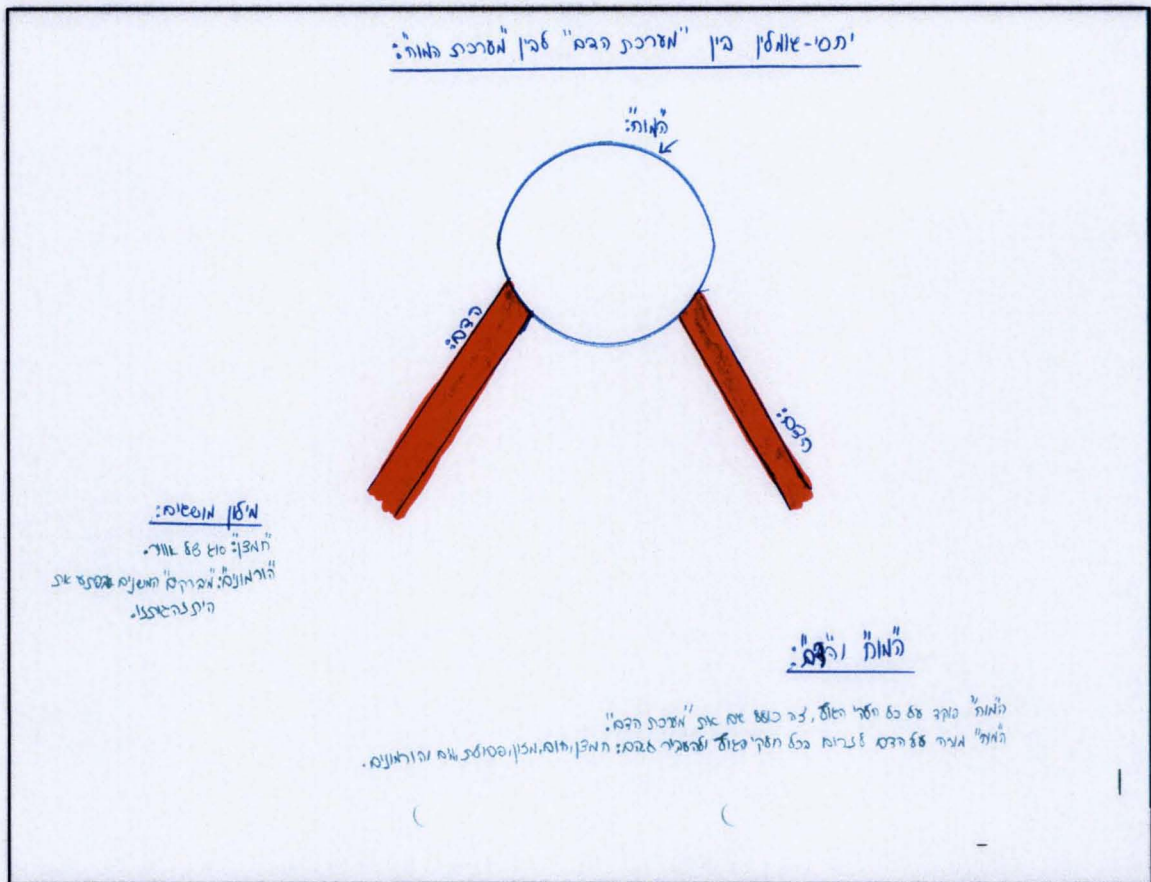 יחסי-גומלין בין "מערכת הדם" לבין "מערכת המוח":
"המוח":
הדם:
הדם:
מילון מושגים:
"חמצן": סוג של אוויר.
"הורמונים": "מברקים" המשנים את
התנהגותנו.
"המוח" ו"הדם":
"המוח" פוקד על כל חלקי הגוף, זה כולל גם את "מערכת הדם".
"המוח" מורה על הדם לזרום בכל חלקי הגוף ולהעביר בגופם: חמצן, חום, מזון, פסולת, מים והורמונים.